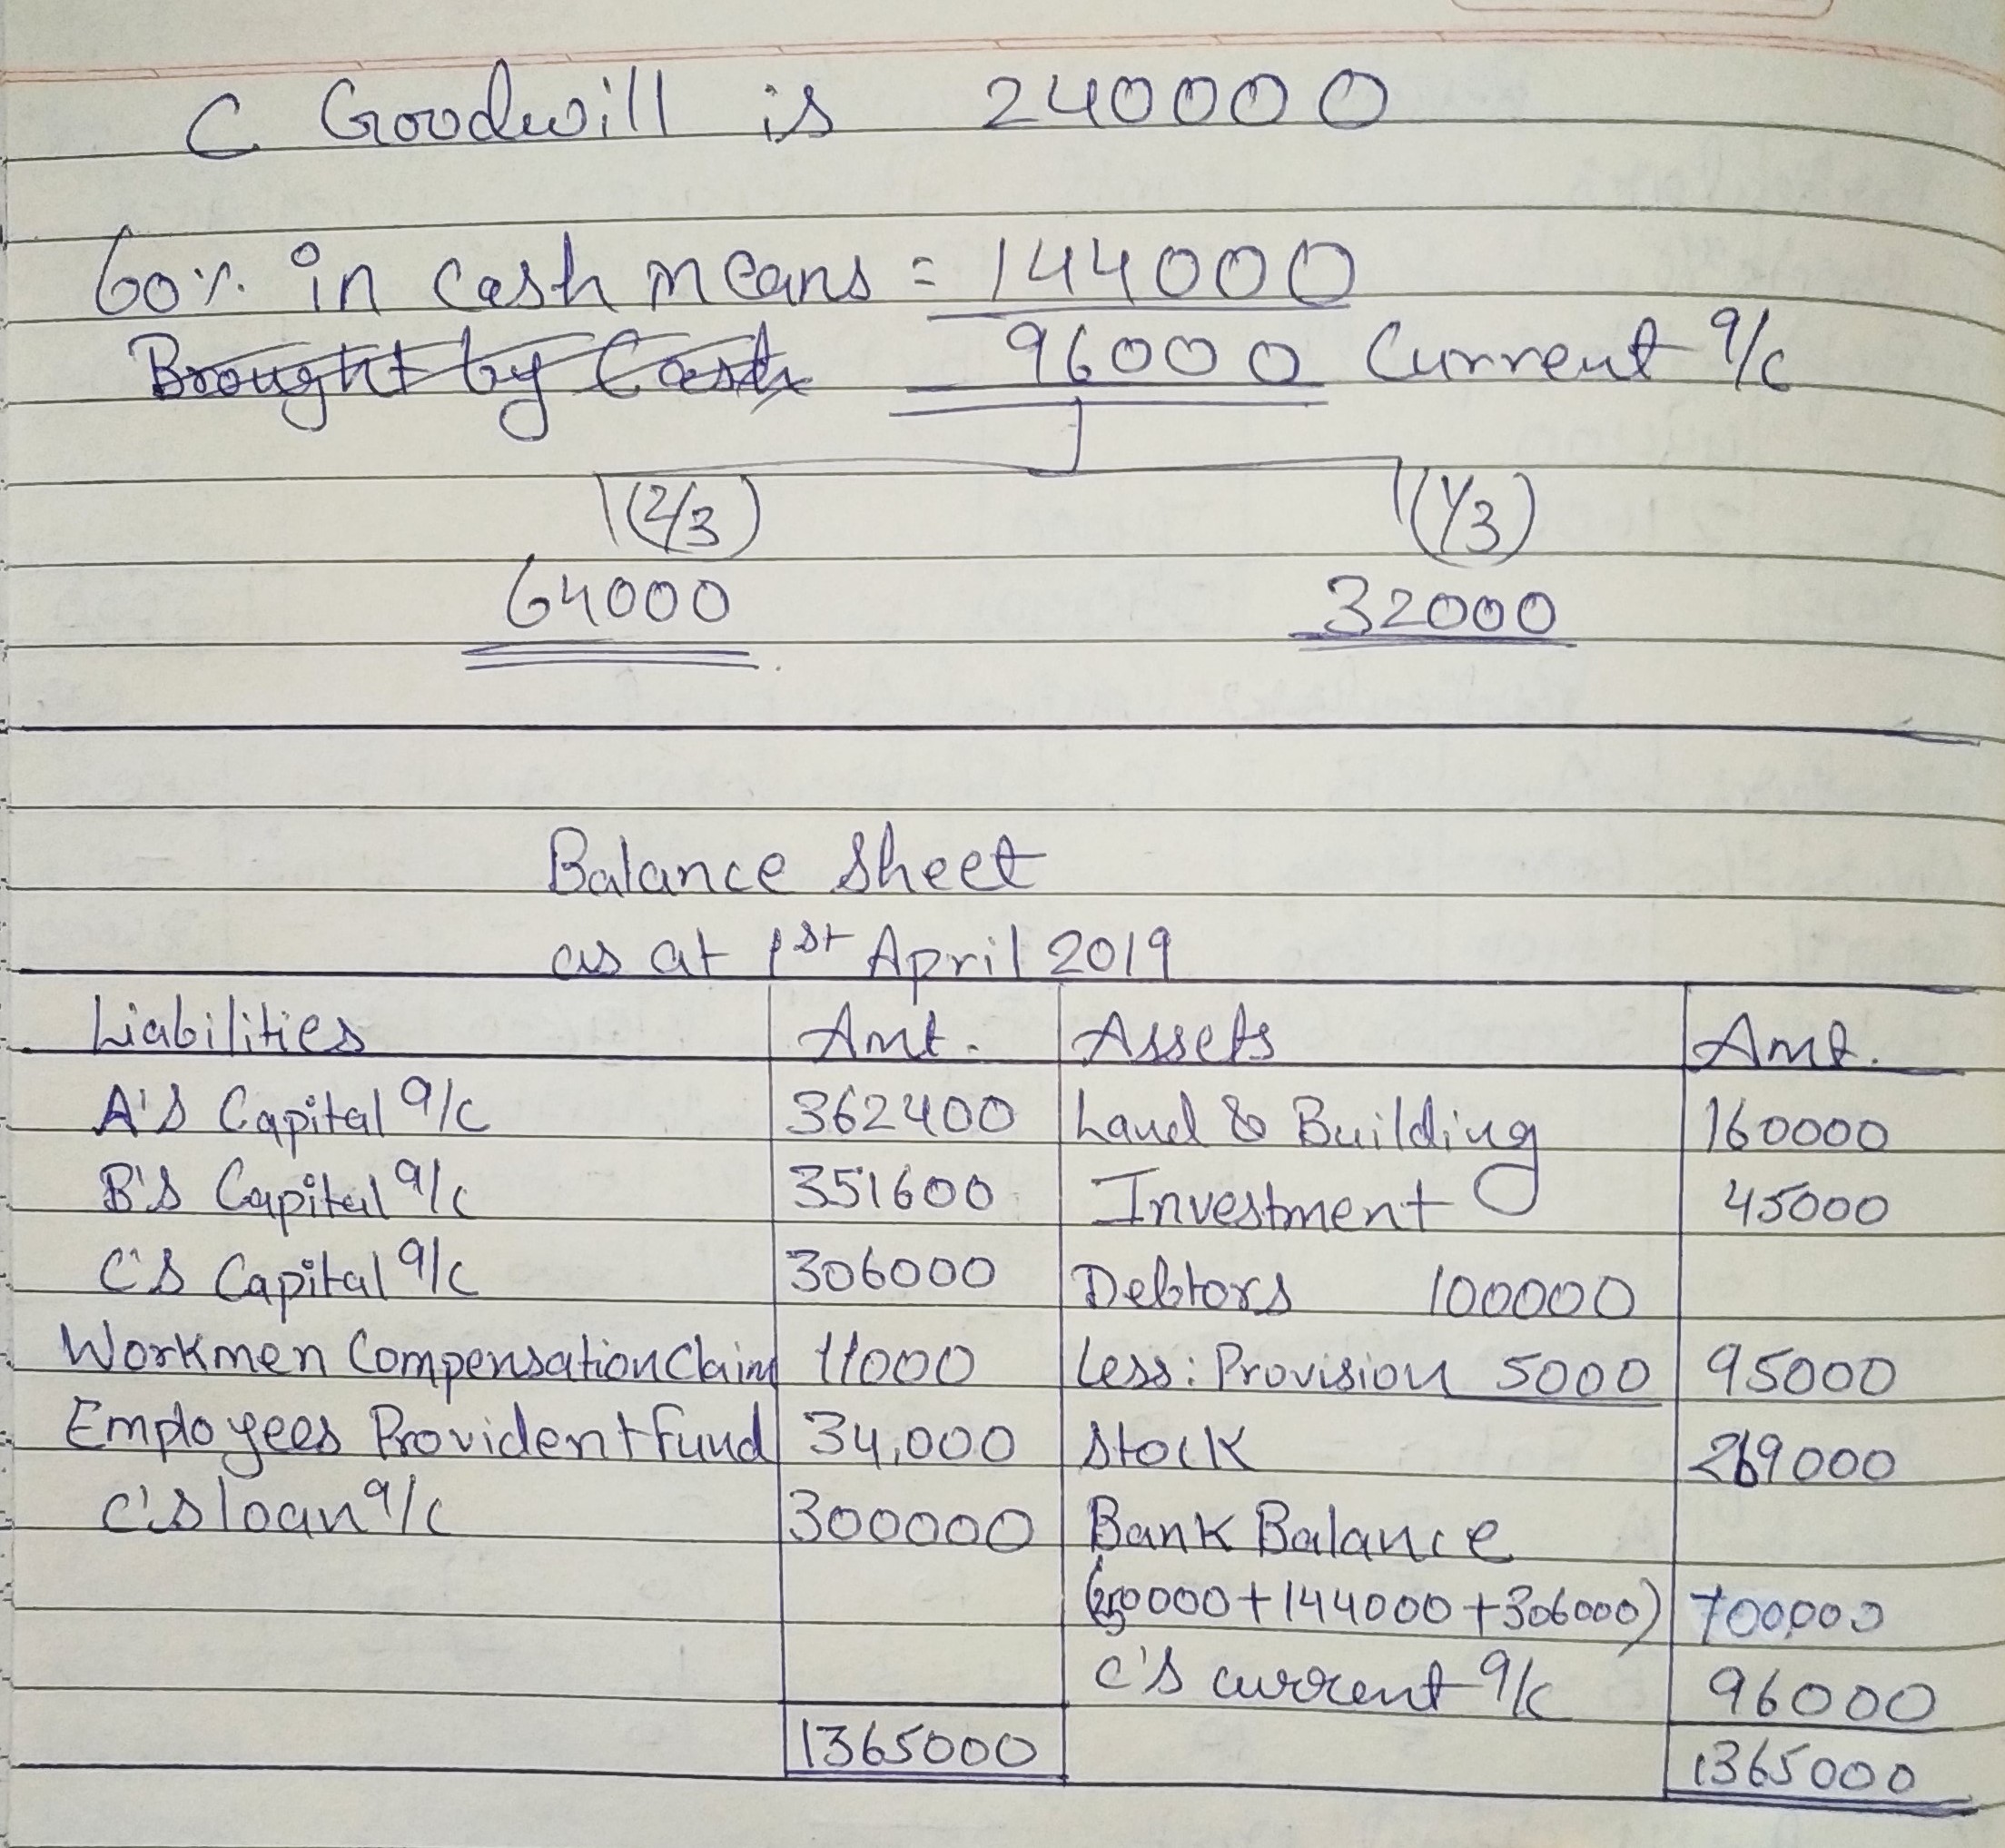 C Goodwill is 240000
60% in cash means = 144000
Brought by Cash 96000 Current a/c
(2/3) (1/3)
64000 32000
Balance Sheet
as at 1st April 2019
Liabilities Amt. Assets Amt.
A's Capital a/c 362400 Land & Building 160000
B's Capital a/c 351600 Investment 45000
C's Capital a/c 306000 Debtors 100000
Workmen Compensation Claim 11000 Less: Provision 5000 95000
Employees Provident fund 34,000 Stock 269000
C's loan a/c 300000 Bank Balance
( + 144000 + 306000) 700000
C's current a/c 96000
1365000 1365000